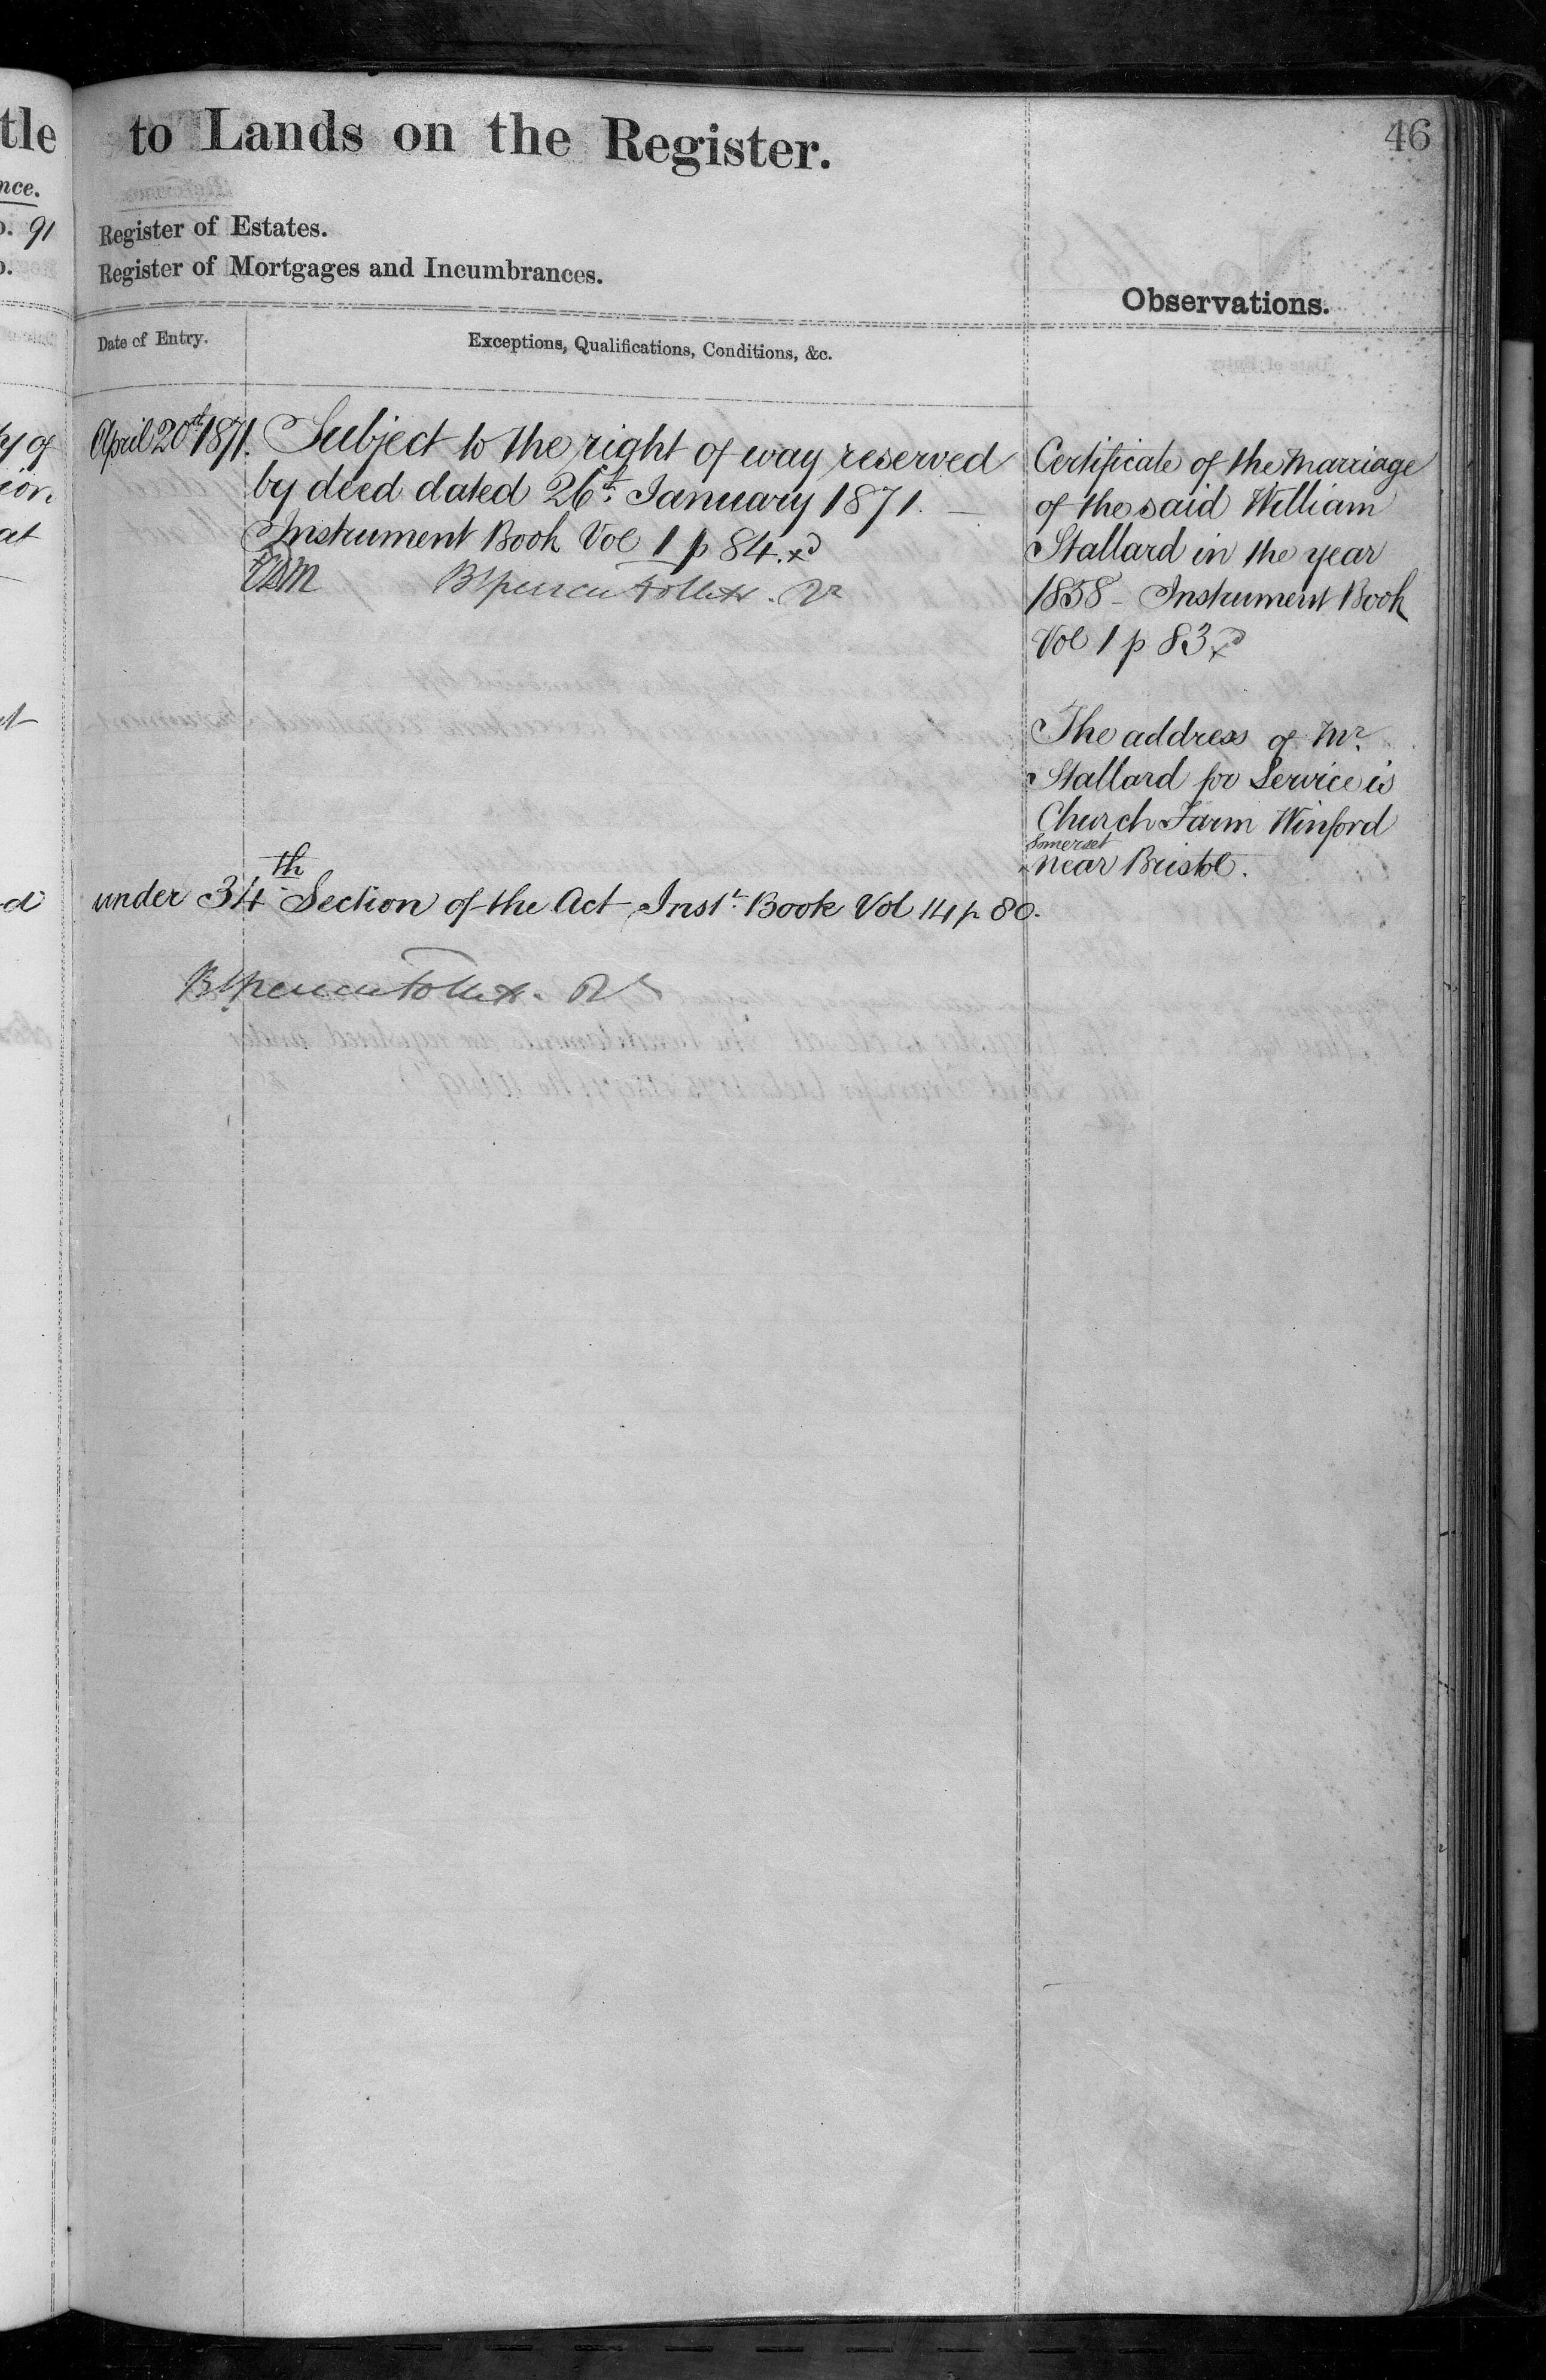 tle
to Lands on the Register.
46
nce.
o. 91
Register of Estates.
o.
Register of Mortgages and Incumbrances.
Observations.
Date of Entry.
Exceptions, Qualifications, Conditions, &c.
April 20th 1871.
Subject to the right of way reserved
by deed dated 26th January 1871.
Instrument Book Vol 1 p 84. xd
Certificate of the marriage
of the said William
Stallard in the year
1858 - Instrument Book
Vol 1 p 83 xd
The address of Mr.
Stallard for Service is
Church Farm Winford
Somerset
near Bristol.
under 34th Section of the Act Inst. Book Vol 14 p 80.